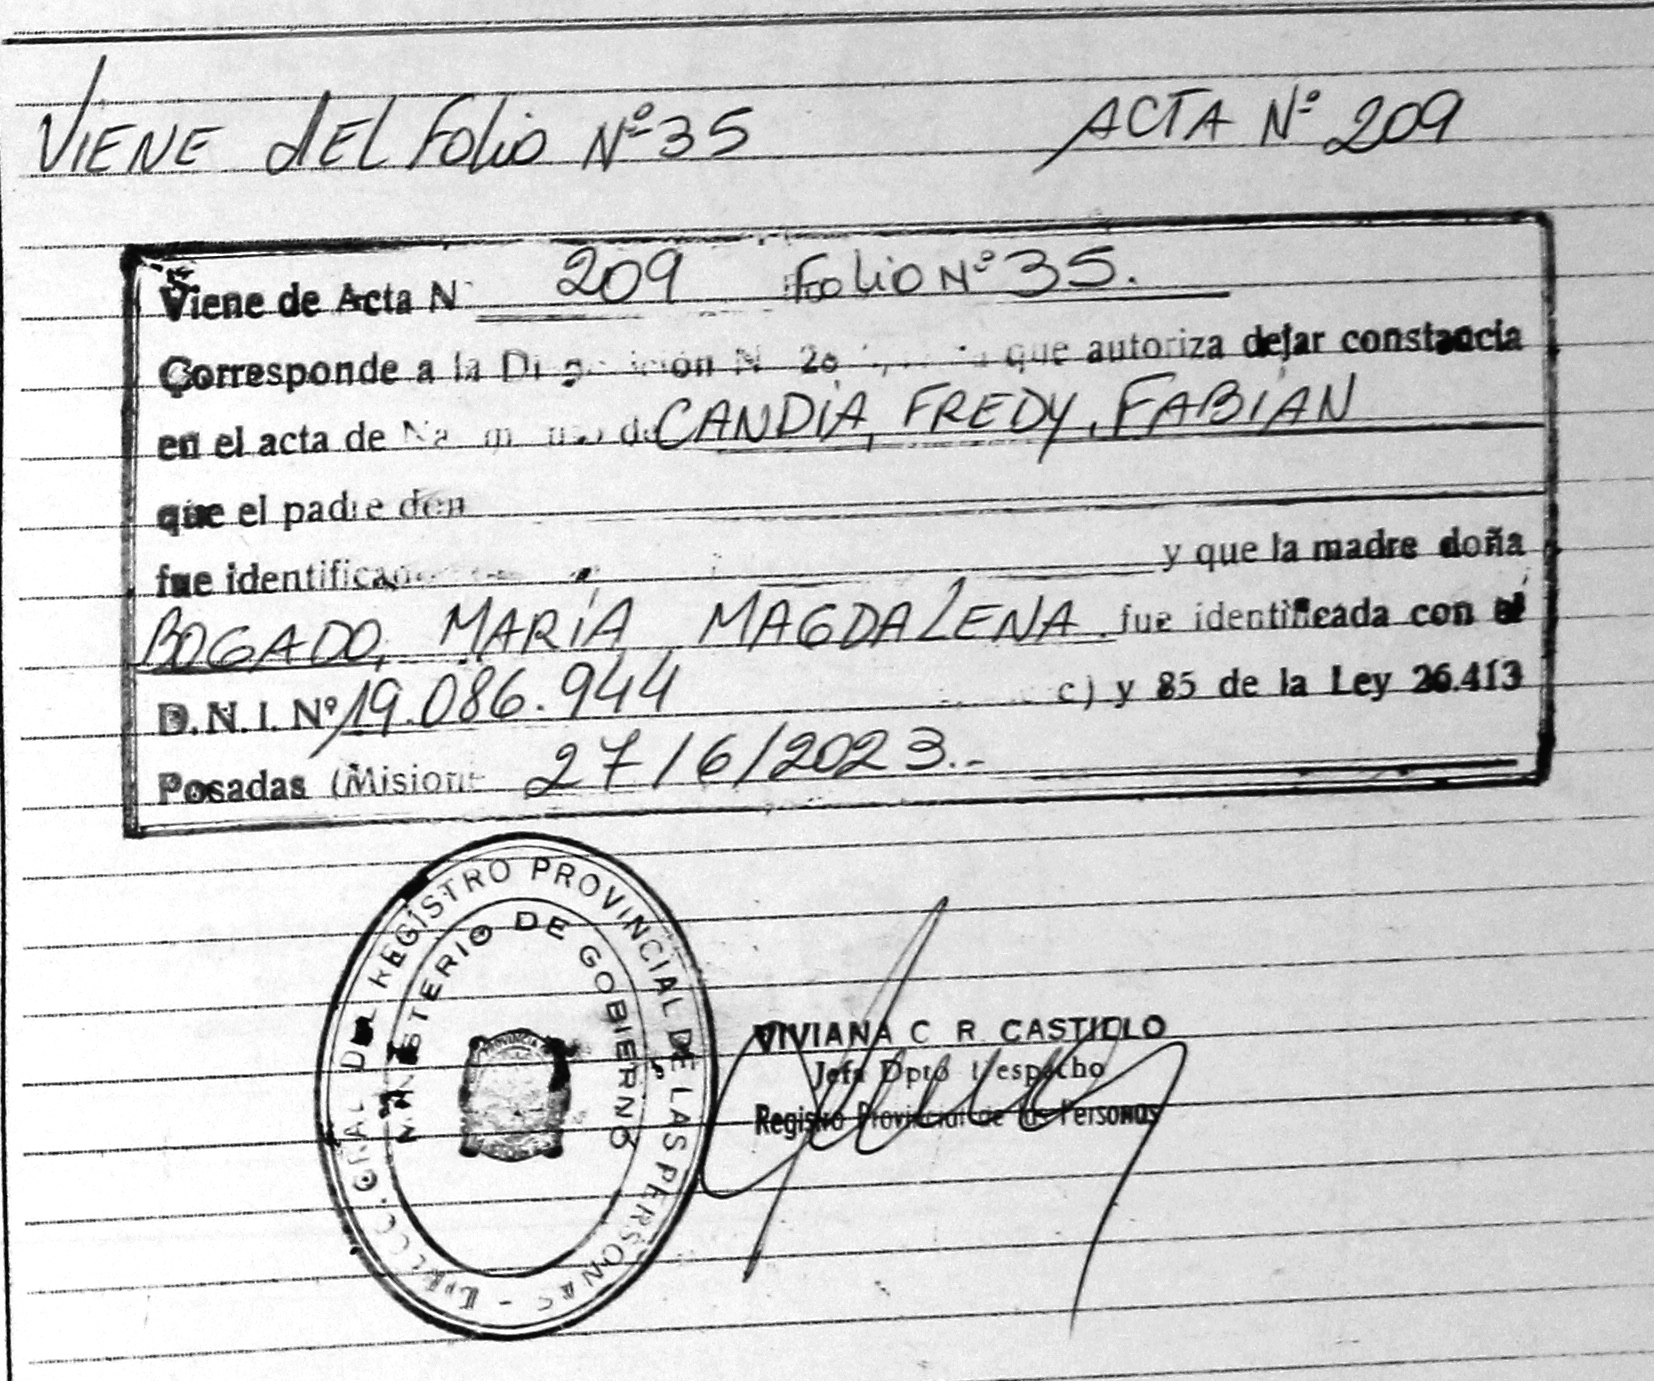 VIENE dEL Folio Nº 35 ACTA Nº 209
Viene de Acta N 209 Folio Nº 35.
Corresponde a la que autoriza dejar constancia
en el acta de CANDIA, FREDY, FABIAN
que el padre don
fue identificado y que la madre doña
BOGADO, MARÍA MAGDALENA. fue identificada con el
D.N.I. Nº 19.086.944 c) y 85 de la Ley 26.413
Posadas (Misiones 27/6/2023.-
DIRECC. GRAL DEL REGISTRO PROVINCIAL DE LAS PERSONAS -
MINISTERIO DE GOBIERNO
PROVINCIA
VIVIANA C R. CASTILLO
Jefa Dpto Despacho
Registro Provincial de las Personas